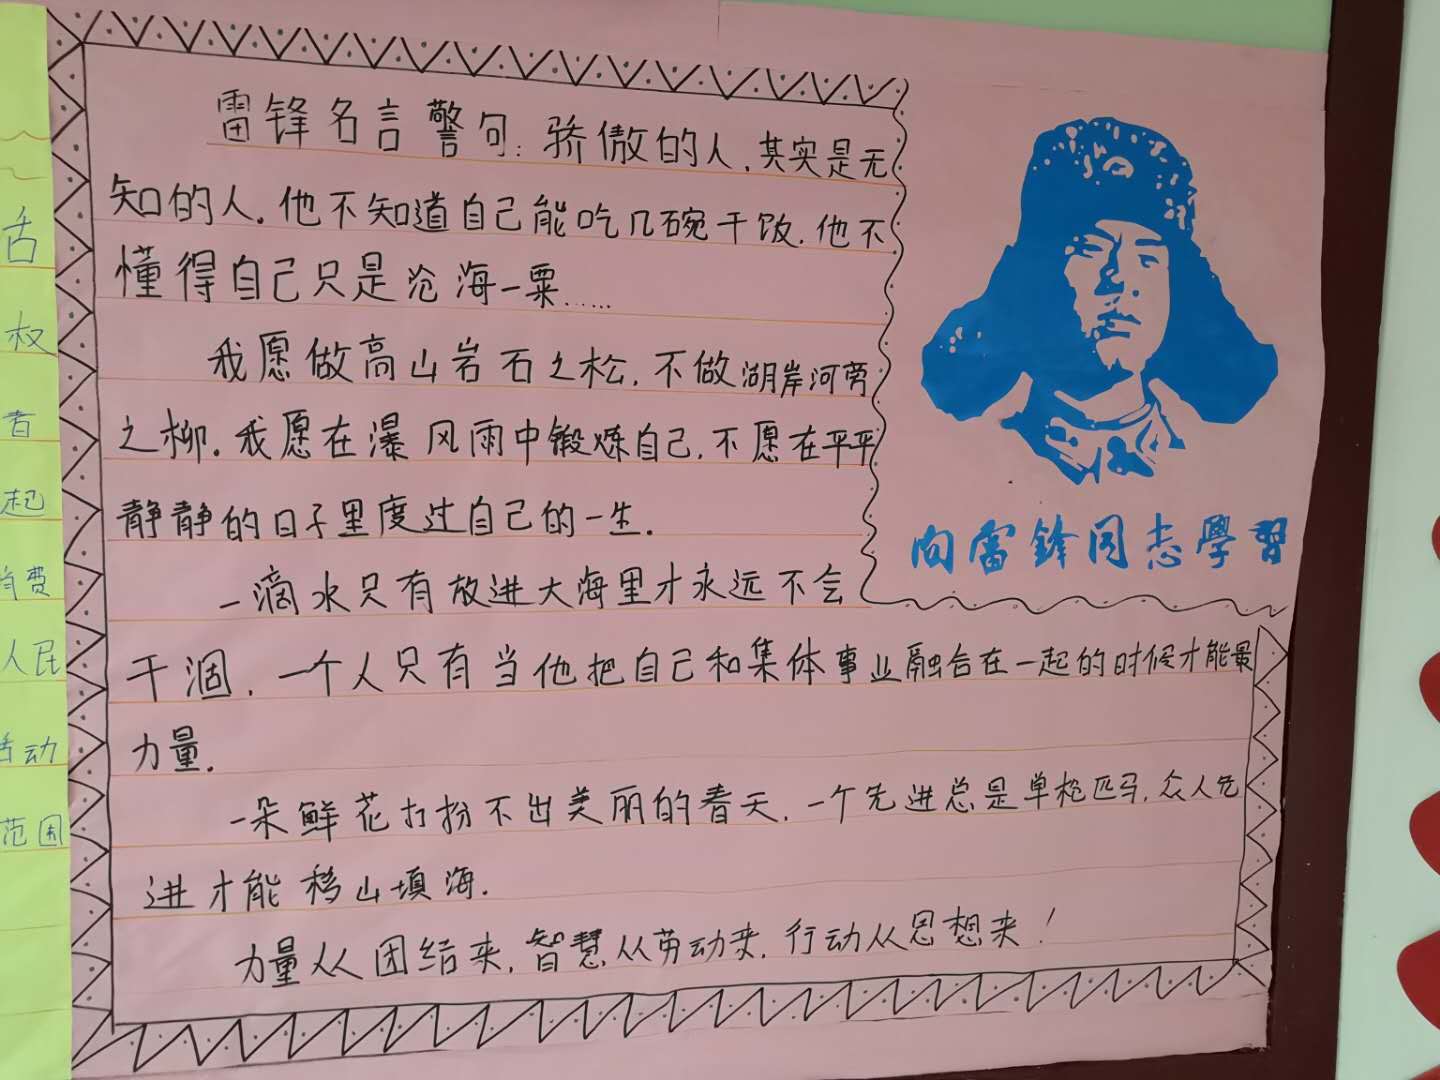 雷锋名言警句：骄傲的人，其实是无
知的人。他不知道自己能吃几碗干饭，他不
懂得自己只是沧海一粟……
我愿做高山岩石之松，不做湖岸河旁
之柳。我愿在瀑风雨中锻炼自己，不愿在平平
静静的日子里度过自己的一生。
一滴水只有放进大海里才永远不会
干涸，一个人只有当他把自己和集体事业融合在一起的时候才能最
力量。
一朵鲜花打扮不出美丽的春天，一个先进总是单枪匹马，众人先
进才能移山填海。
力量从团结来，智慧从劳动来，行动从思想来！
向雷锋同志學習
舌
权
者
起
消费
人民
活动
范围